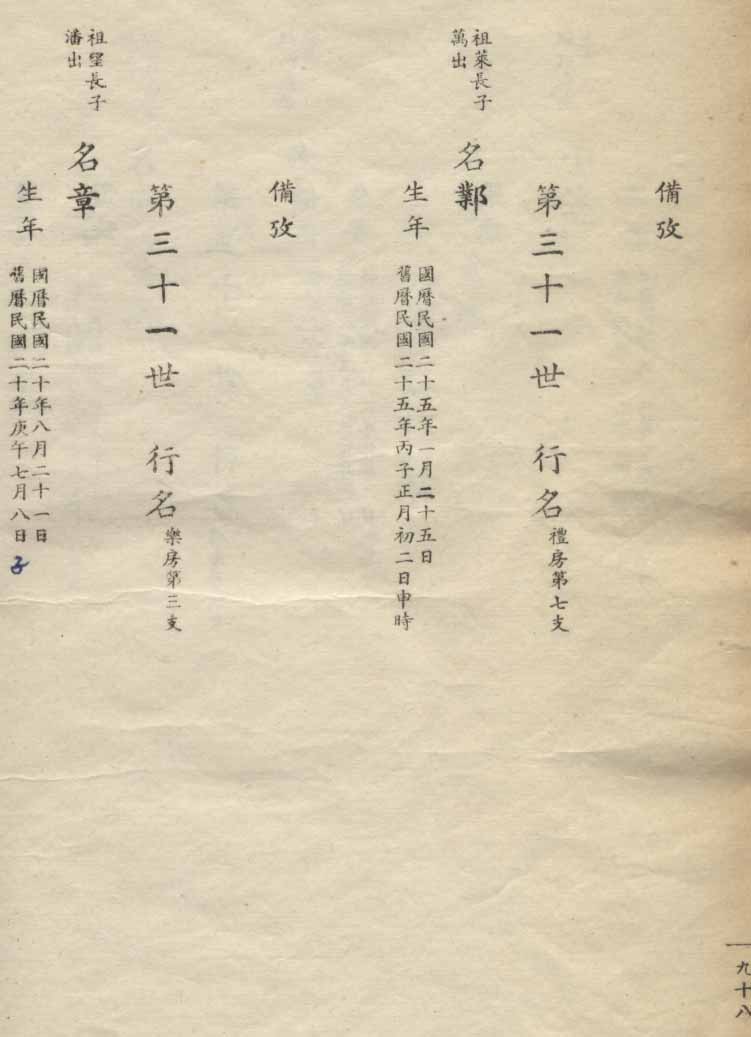 備攷
第三十一世 行名
禮房第七支
祖萊長子
萬出
名鄴
生年
國曆民國二十五年一月二十五日
舊曆民國二十五年丙子正月初二日申時
備攷
第三十一世 行名
樂房第三支
祖望長子
潘出
名章
生年
國曆民國二十年八月二十一日
舊曆民國二十年庚午七月八日子
九十八